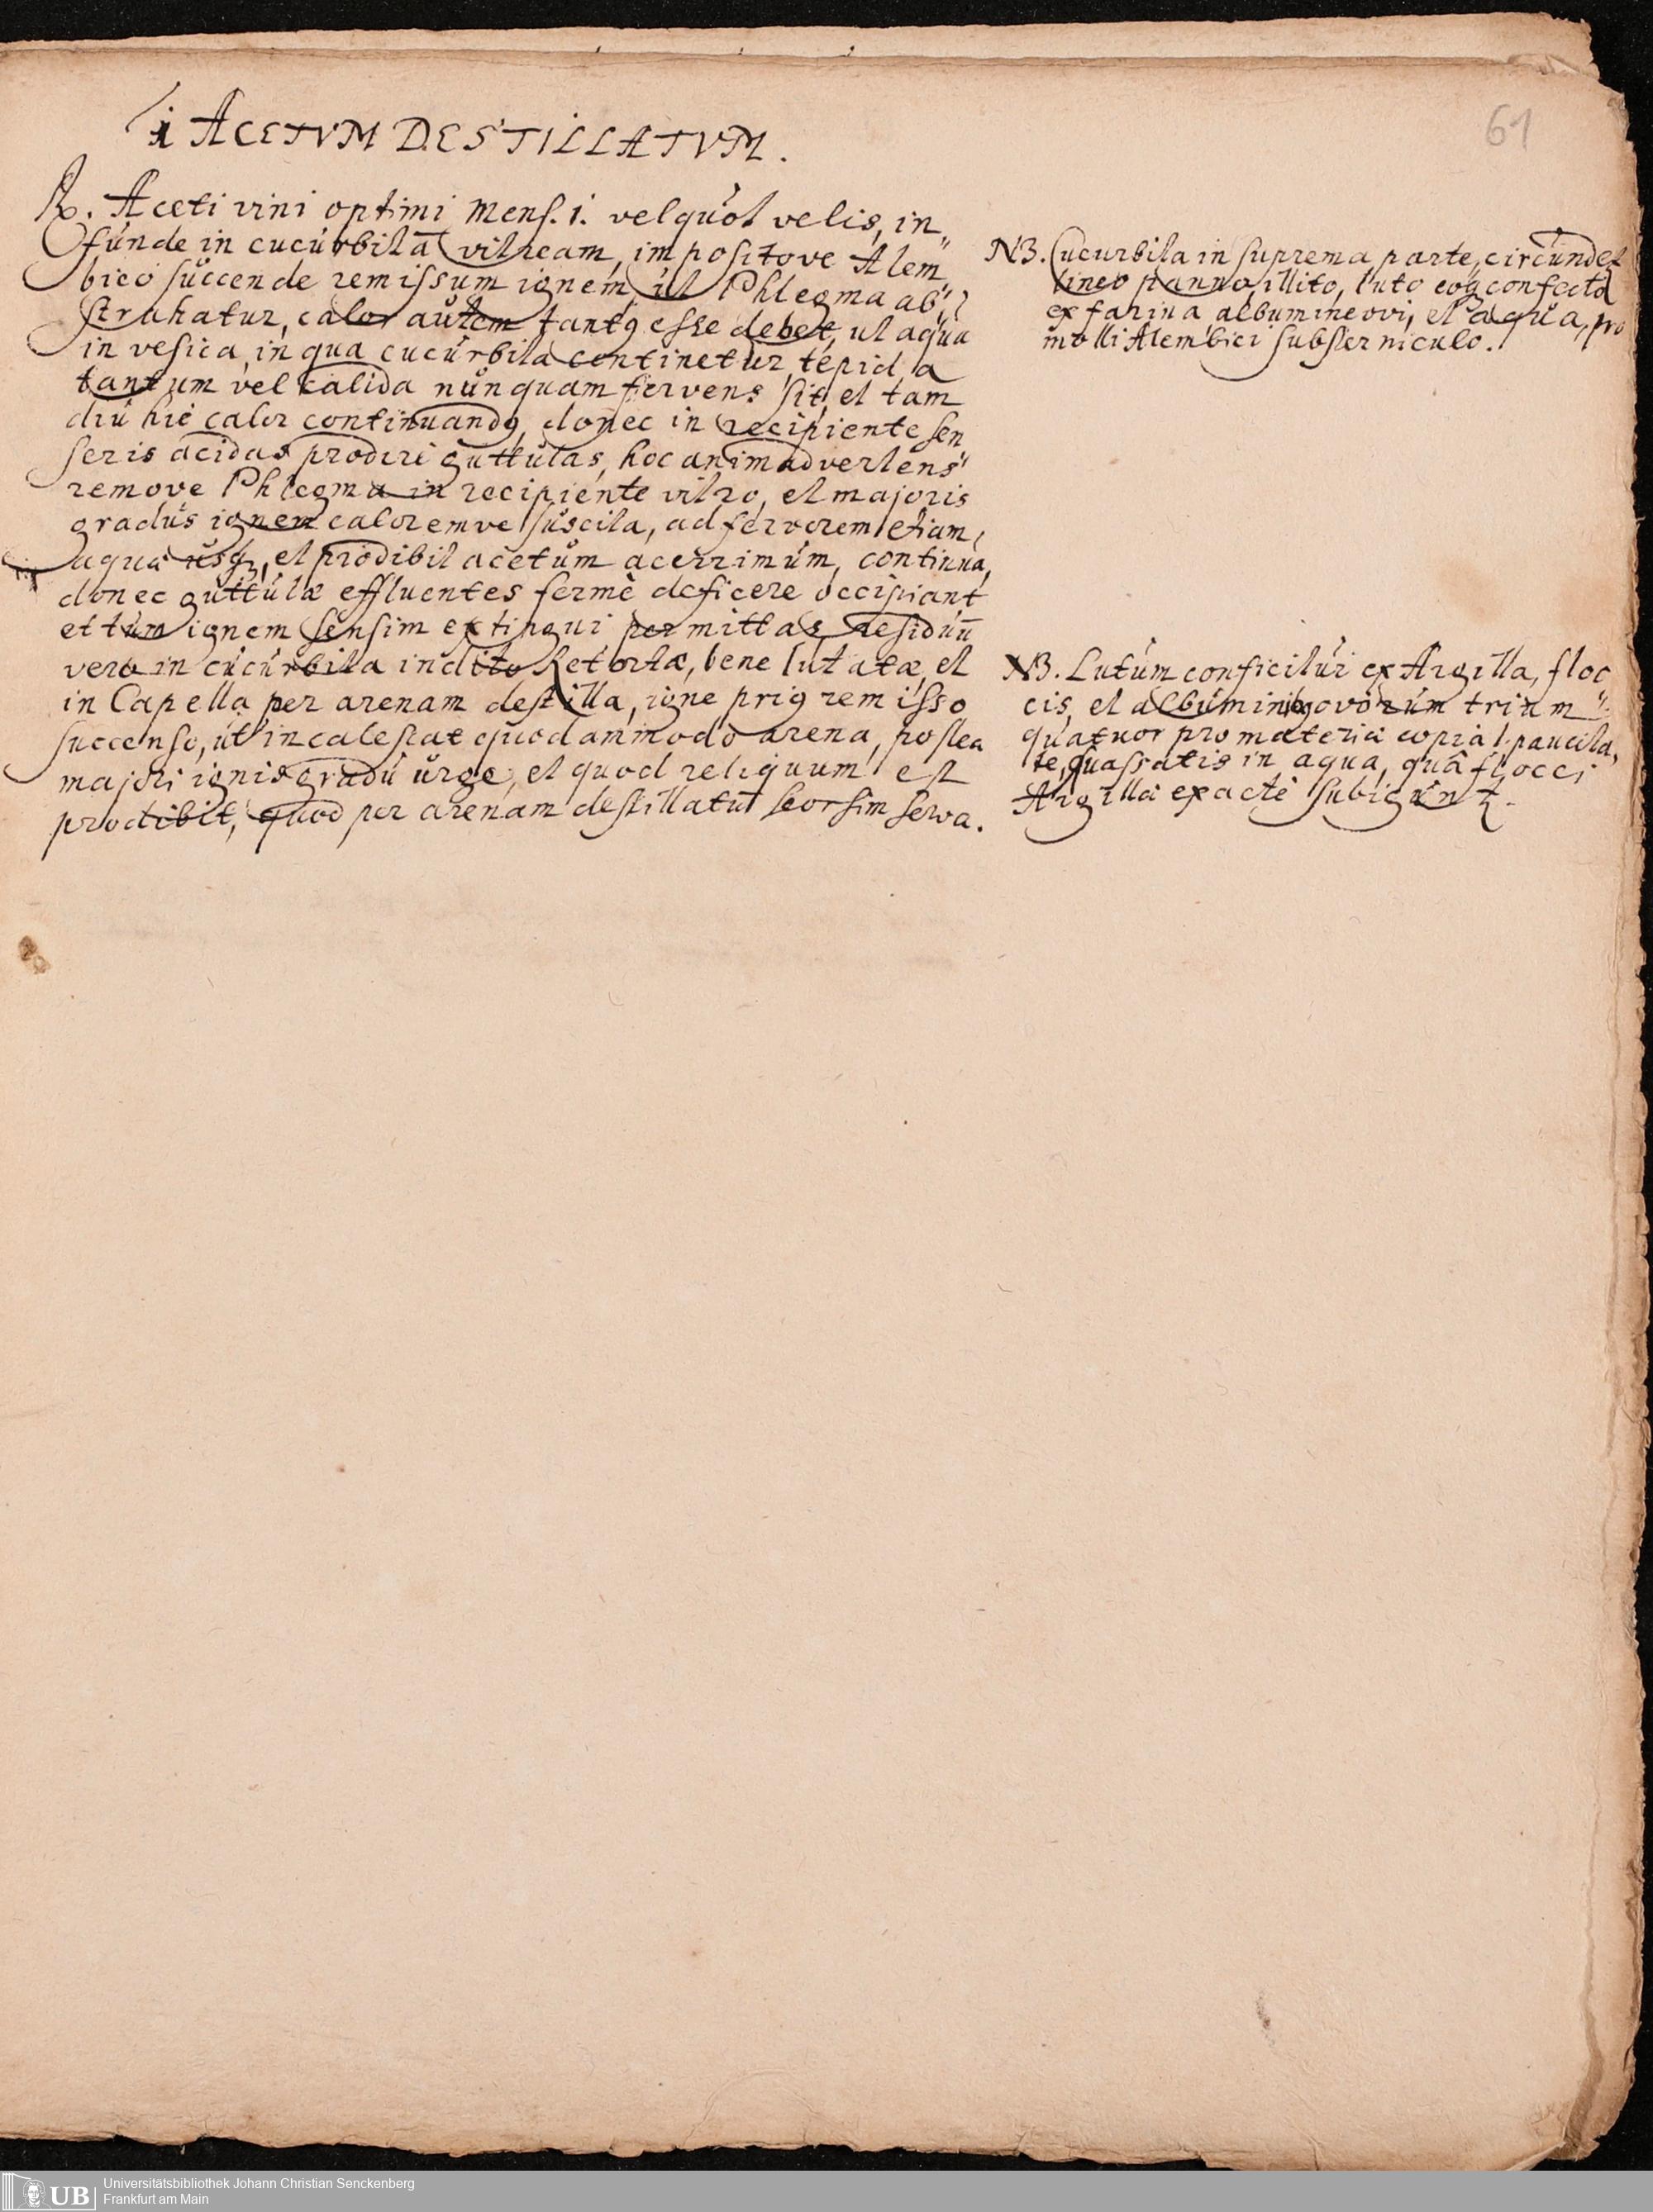 61
1 ACETVM DESTILLATVM.
℞. Aceti vini optimi mens. i. vel quot velis, in„
funde in cucurbitā vitream, impositove Alem„
bico succende remissum ignem, ut Phlegma ab„
strahatur, calor autem tantꝯ esse debet, ut aqua
in vesica, in qua cucurbita continetur, tepida
tantum vel calida nunquam fervens sit, et tam
diu hic calor continuandꝯ, donec in recipiente sen
seris acidas prodire guttulas, hoc animadvertens
remove Phlegma in recipiente vitro, et majoris
gradus ignem caloremve suscita, ad fervorem etiam
aquæ usqꝫ, et prodibit acetum acerrimum, continua,
donec guttulæ effluentes fermè deficere occipiant
et tum ignem sensim extingui permittas, residuū
vero in cucurbita indito Retortæ, bene lutatæ, et
in Capella per arenam destilla, igne priꝯ remisso
succenso, ut incalescat quodammodo arena, postea
majori ignis gradu urge, et quod reliquum est
prodibit, quod per arenam destillatū seorsim serva.
NB. Cucurbita in suprema parte, circundet
lineo panno, illito, luto eoqꝫ confecto
ex farina albumine ovi, et aqua, pro
molli Alembici substerniculo.
NB. Lutum conficitur ex Argilla, floc
cis, et albuminibꝯ ovorum trium
quatuor pro materiæ copia l. paucita,
te, quassatis in aqua, quâ flocci
Argilla exactè subigunt.
UB Universitätsbibliothek Johann Christian Senckenberg
Frankfurt am Main